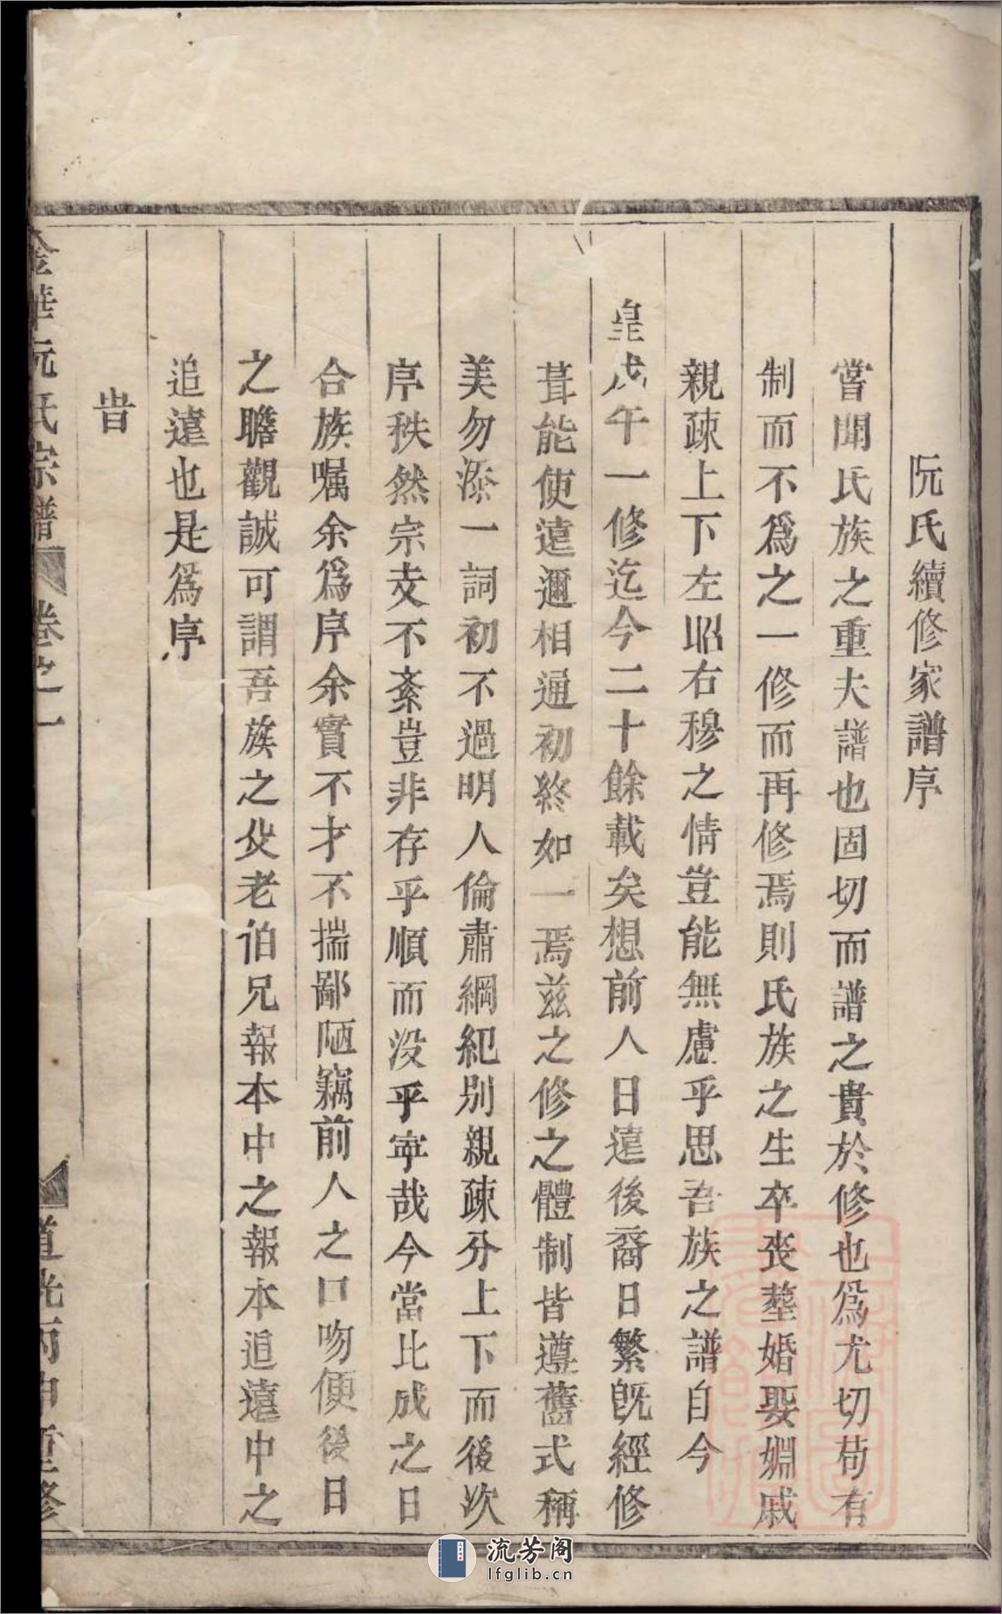 阮氏續修家譜序
嘗聞氏族之重夫譜也固切而譜之貴於修也爲尤切苟有
制而不爲之一修而再修焉則氏族之生卒喪塟婚娶婣戚
親疎上下左昭右穆之情豈能無慮乎思吾族之譜自今
皇戊午一修迄今二十餘載矣想前人日遠後裔日繁旣經修
葺能使遠邇相通初終如一焉兹之修之體制皆遵舊式稱
美勿添一詞初不過明人倫肅綱紀别親疎分上下而後次
序秩然宗支不紊豈非存乎順而没乎寕哉今當比成之日
合族嘱余爲序余實不才不揣鄙陋竊前人之口吻便後日
之瞻觀誠可謂吾族之父老伯兄報本中之報本追遠中之
追遠也是爲序
旹
金華阮氏宗譜 卷之一 道光丙申重修
流芳阁
lfglib.cn